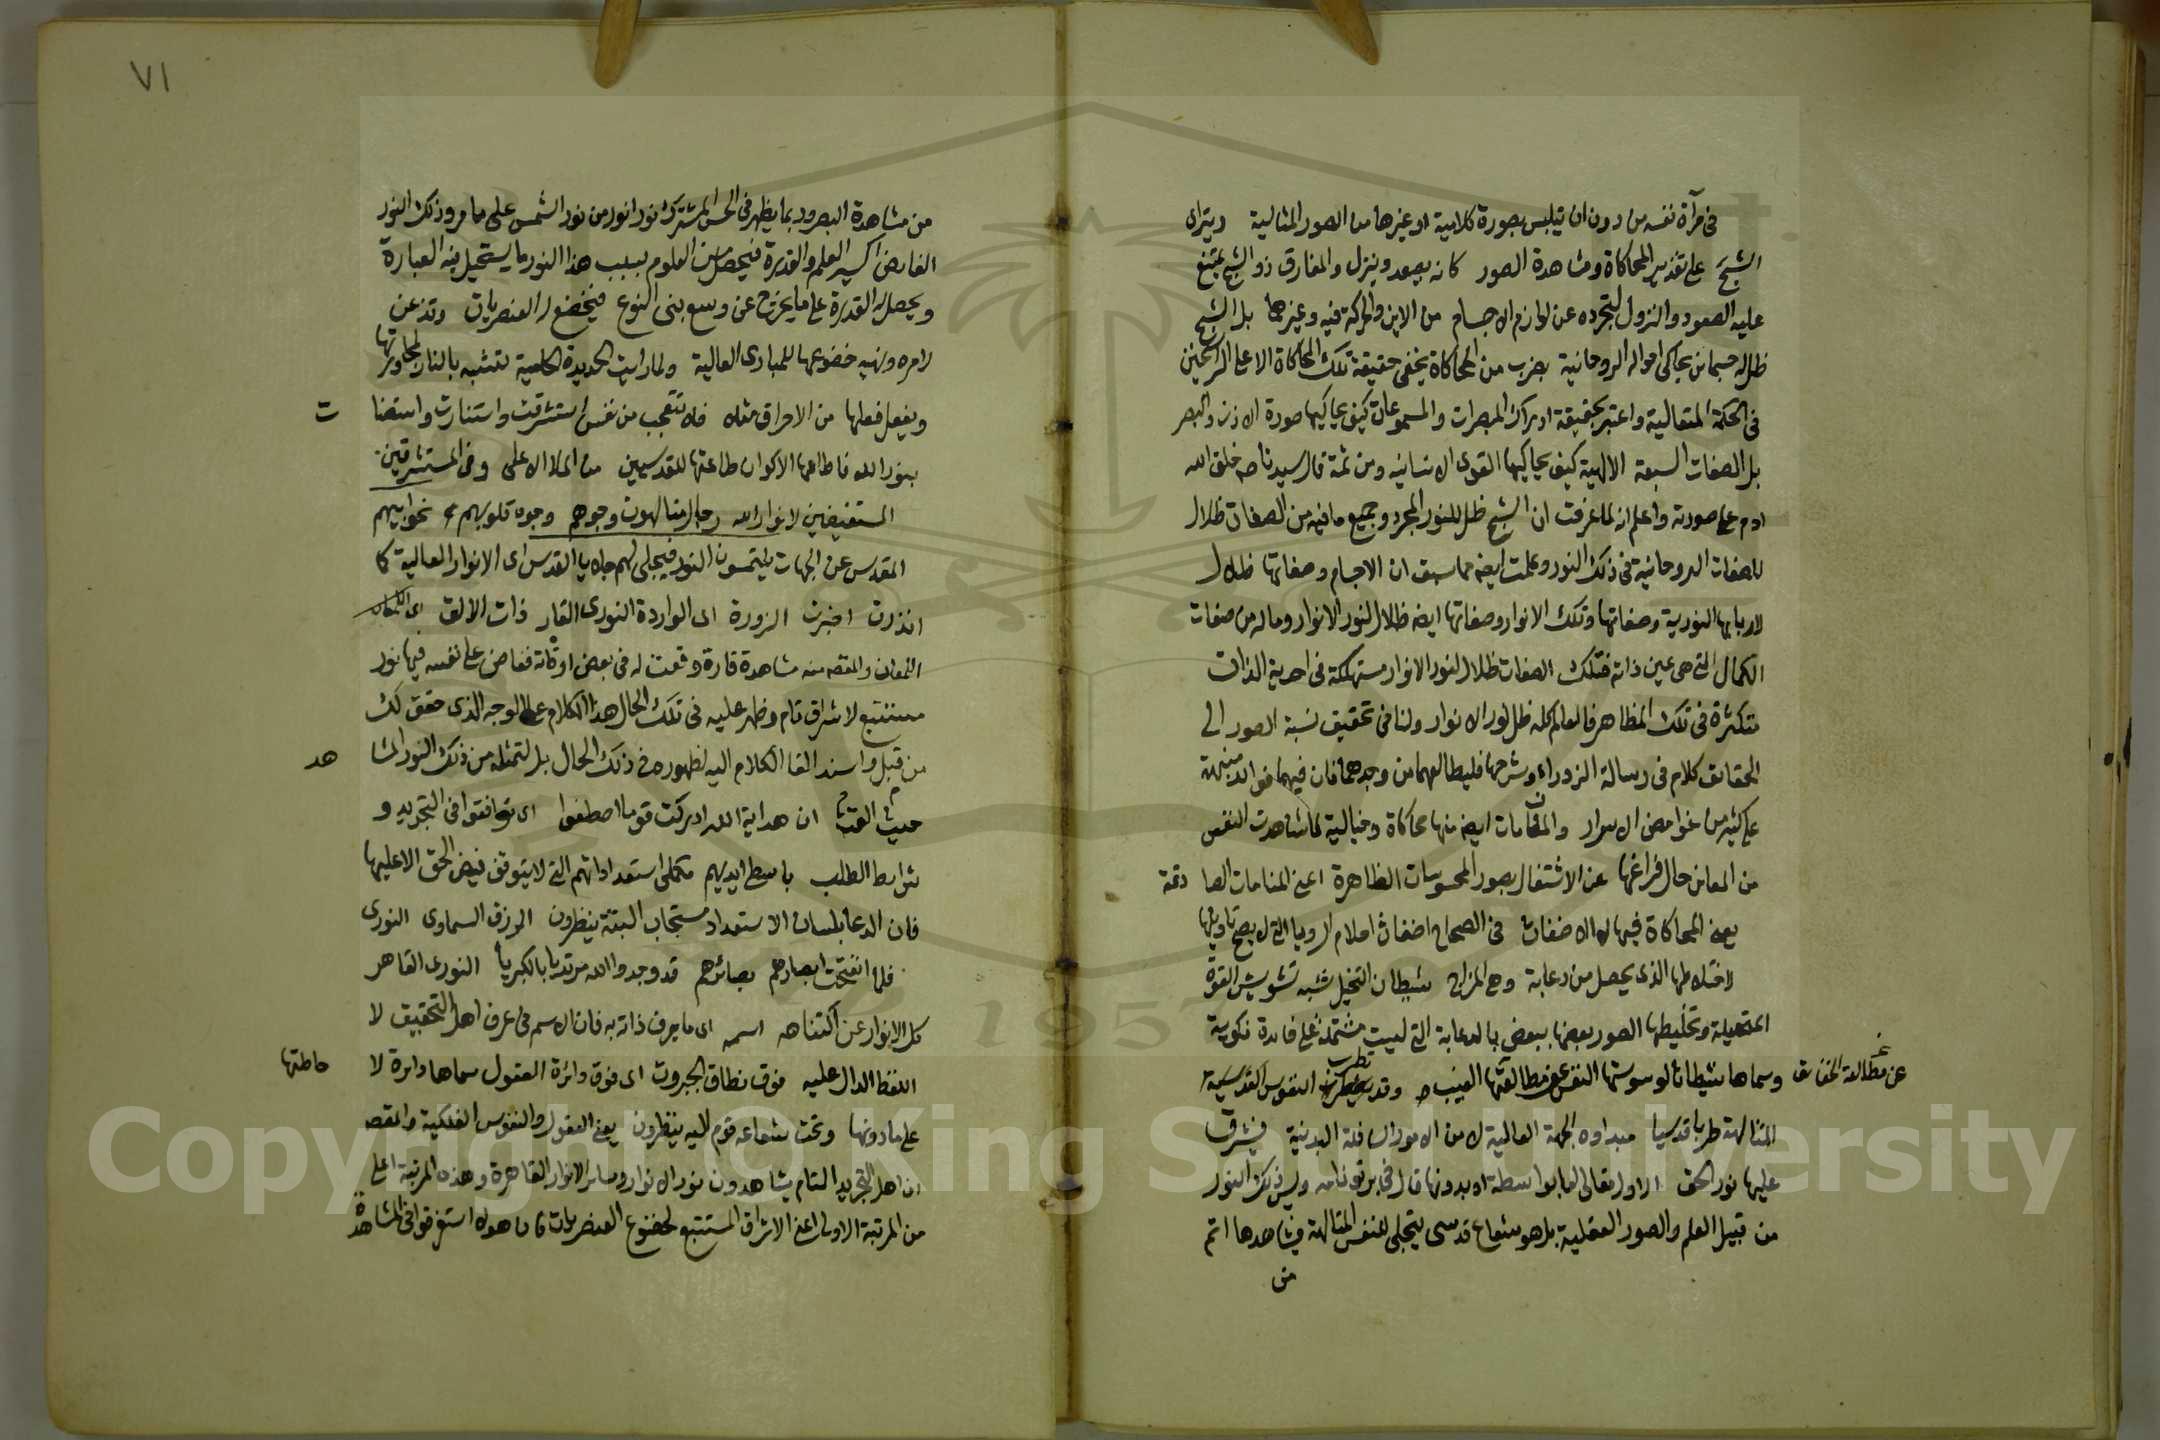 في مرآة نفسه من دون ان يتلبس بصورة كلامية او غيرها من الصور المثالية ويتراى
الشبح على تقدير المحاكاة ومشاهدة الصور كانه يصعد وينزل والمفارق ذو الشبح يمتنع
عليه الصعود والنزول لتجرده عن لوازم الاجسام من الاين والحركة فيه وغيرهما بل الشبح
ظل له جسماني يحاكي احواله الروحانية بضرب من المحاكاة يخفى حقيقة تلك المحاكاة الا على الراسخين
في الحكمة المتعالية واعتبر بحقيقة ادراك المبصرات والمسموعات كيف يحاكيها صورة الاذن والبصر
بل الصفات السبعة الالهية كيف يحاكيها القوى الانسانية ومن ثمة قال سيدنا صم خلق الله
ادم على صورته واعلم انه لما عرفت ان الشبح ظل للنور المجرد وجميع ما فيه من الصفات ظلال
للصفات الروحانية في ذلك النور وعلمت ايضا مما سبق ان الاجسام وصفاتها ظلال
لاربابها النورية وصفاتها وتلك الانوار وصفاتها ايضا ظلال لنور الانوار وماله من صفات
الكمال التي هي عين ذاته فتلك الصفات ظلال لنور الانوار مستهلكة في احدية الذات
متكثرة في تلك المظاهر فالعالم كله ظل لنور الانوار ولنا في تحقيق نسبة الصور الى
الحقائق كلام في رسالة الزوراء وشرحها فليطالعهما من وجدهما فان فيهما فوائد منبهة
على كثير من غوامض الاسرار والمنامات ايضا منها محاكاة وخيالية لما شاهدت النفس
من المعاني حال فراغها عن الاشتغال بصور المحسوسات الظاهرة اعني المنامات الصا دقة
يعني المحاكاة فيها لا الاضغاث في الصحاح اضغاث احلام الرويا التي لا يصح تاويلها
لاختلاطها الذي يحصل من دعابة وهي المزاح شيطان التخيل شبه تشويش القوة
المتخيلة وتخليطها الصور بعضها ببعض بالدعابة التي ليست مشتملة على فائدة فكرية
وسماها شيطانا لوسوستها النفس عن مطالعتها الغيب وقد تطرب النفوس القدسية
عن مطالعة الحقائق
المتالهة طربا قدسيا مبداوه الجهة العالية لا من الامور السافلة البدنية فيشرق
عليها نور الحق الاول تعالى اما بواسطة او بدونها قال في پرتونامه وليس ذلك النور
من قبيل العلم والصور العقلية بل هو شعاع قدسي يتجلى للنفس المتالهة فيشاهدها اتم
من
٧١
من مشاهدة البصر وربما يظهر في الحس المشترك نور انور من نور الشمس على ما مر وذلك النور
الفائض اكسير العلم والقدرة فيحصل من العلوم بسبب هذا النور ما يستحيل فيه العبارة
ويحصل له القدرة على ما يخرج عن وسع بني النوع فيخضع له العنصريات وتذعن
لامره ونهيه خضوعها للمبادى العالية ولما رايت الحديدة الحامية تتشبه بالنار لمجاورتها
ويفعل فعلها من الاحراق مثلا فلا تتعجب من نفس استشرقت واستنارت واستضا ت
بنور الله فاطاعها الاكوان طاعتها للقدسيين من الملا الاعلى وفي المستشرقين
المستفيضين لانوار الله رجال متالهون وجوههم وجوه قلوبهم نحو ابيهم
المقدس عن الجهات يلتمسون النور فيتجلى لهم جلايا القدس اى الانوار العالية كما
انذرت اخبرت الزورة اى الواردة النورى القار ذات الالق اى
اللمعان والمقصد منه مشاهدة قارة وقعت له في بعض اوقاته ففاض على نفسه فيها نور
مستتبع لاشراق تام وظهر عليه في تلك الحال هذا الكلام على الوجه الذي حقق لك
من قبل واسند القا الكلام اليه لظهوره في ذلك الحال بل لتمثله من ذلك النور المشا هد
حيث القت ان هداية الله ادركت قوما اصطفوا اى توافقوا في التجريد و
شرايط الطلب باسطي ايديهم مكملي استعداداتهم التي لا يتوقف فيض الحق الا عليها
فان الدعا بلسان الاستعداد مستجاب البتة ينتظرون الرزق السماوى النورى
فلما انفتحت ابصارهم بصائرهم قد وجدوا الله مرتديا بالكبريا النورى القاهر
كل الانوار عن اكتناهه اسمه اى ما يعرف ذاته به فان الاسم في عرف اهل التحقيق لا
اللفظ الدال عليه فوق نطاق الجبروت اى فوق دائرة العقول سماها دائرة لا حاطتها
على مادونها وتحت شعاعه قوم اليه ينظرون يعني العقول والنفوس الفلكية والمقصد
ان اهل التجريد التام يشاهدون نور الانوار وساير الانوار القاهرة وهذه المرتبة اعلى
من المرتبة الاولى اعني الاشراق المستتبع لخضوع العنصريات فان هولاء استغرقوا في المشاهدة